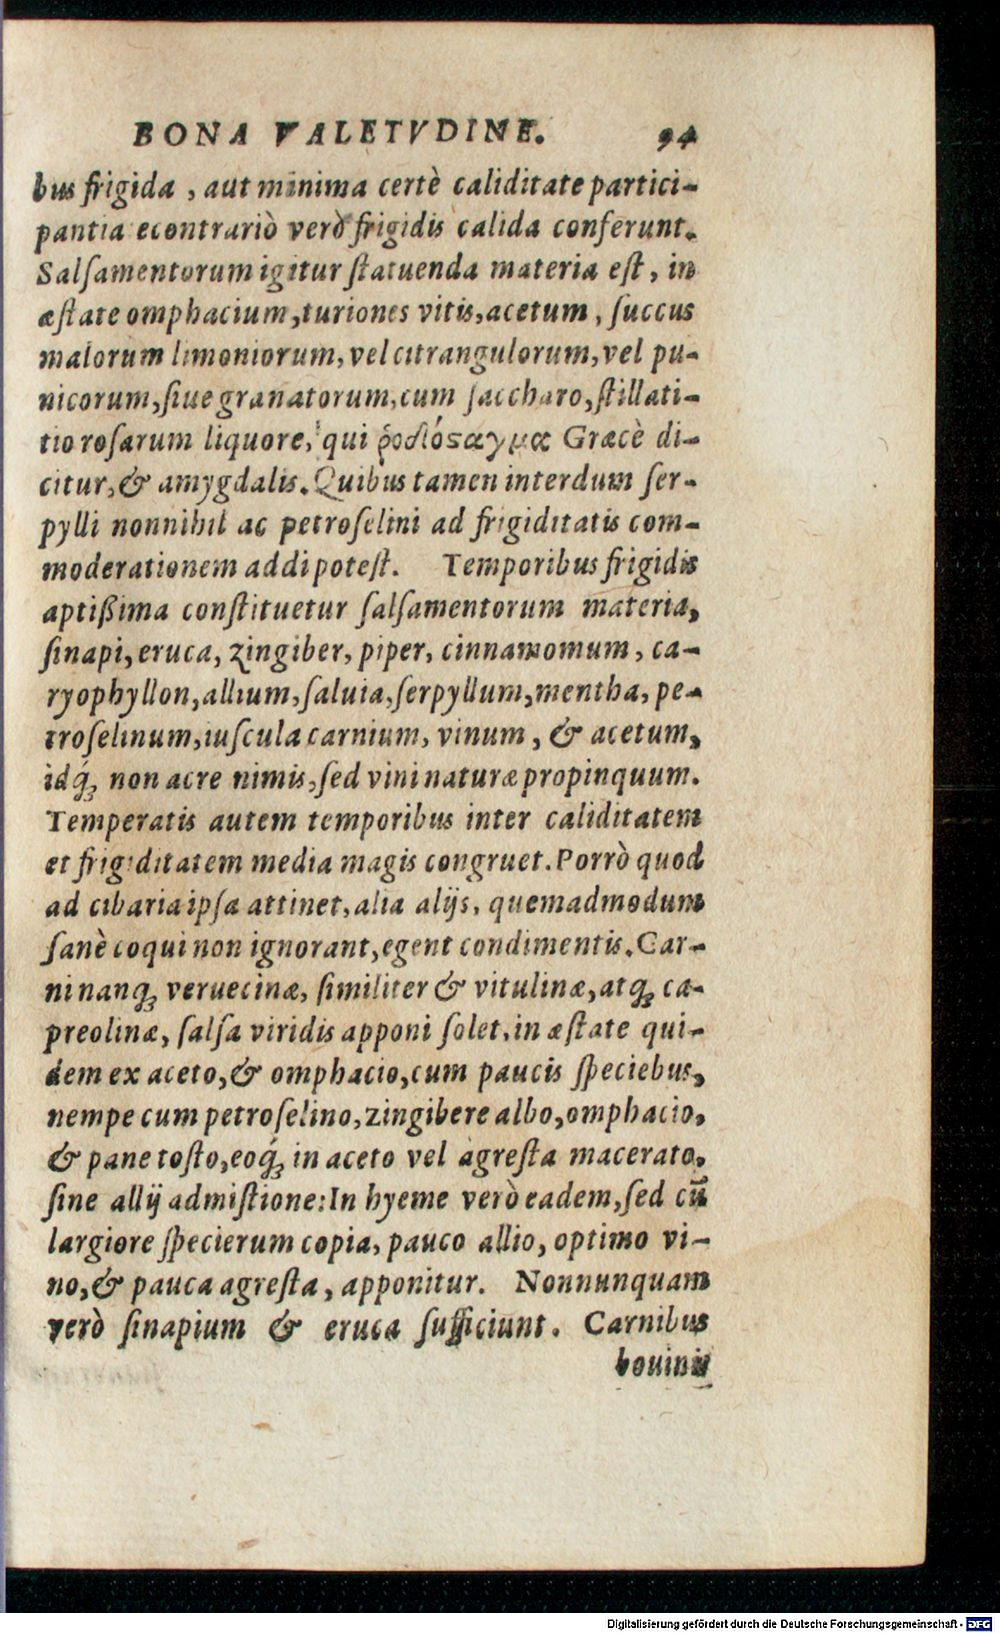 BONA VALETVDINE. 94
bus frigida , aut minima certè caliditate partici-
pantia econtrariò verò frigidis calida conferunt.
Salſamentorum igitur ſtatuenda materia eſt, in
æſtate omphacium, turiones vitis, acetum , ſuccus
malorum limoniorum, vel citrangulorum, vel pu-
nicorum, ſiue granatorum, cum ſaccharo, ſtillati-
tio roſarum liquore, qui ῥοδόσαγμα Græcè di-
citur, & amygdalis. Quibus tamen interdum ſer-
pylli nonnihil ac petroſelini ad frigiditatis com-
moderationem addi poteſt. Temporibus frigidis
aptißima conſtituetur ſalſamentorum materia,
ſinapi, eruca, zingiber, piper, cinnamomum , ca-
ryophyllon, allium, ſaluia, ſerpyllum, mentha, pe-
troſelinum, iuſcula carnium, vinum , & acetum,
idq́ꝫ non acre nimis, ſed vini naturæ propinquum.
Temperatis autem temporibus inter caliditatem
et frigiditatem media magis congruet. Porrò quod
ad cibaria ipſa attinet, alia alijs, quemadmodum
ſanè coqui non ignorant, egent condimentis. Car-
ni nanqꝫ veruecinæ, ſimiliter & vitulinæ, atqꝫ ca-
preolinæ, ſalſa viridis apponi ſolet, in æſtate qui-
dem ex aceto, & omphacio, cum paucis ſpeciebus,
nempe cum petroſelino, zingibere albo, omphacio,
& pane toſto, eoq́ꝫ in aceto vel agreſta macerato,
ſine allij admiſtione: In hyeme verò eadem, ſed cū
largiore ſpecierum copia, pauco allio, optimo vi-
no, & pauca agreſta , apponitur. Nonnunquam
verò ſinapium & eruca ſufficiunt. Carnibus
bouinis
Digitalisierung gefördert durch die Deutsche Forschungsgemeinschaft - DFG